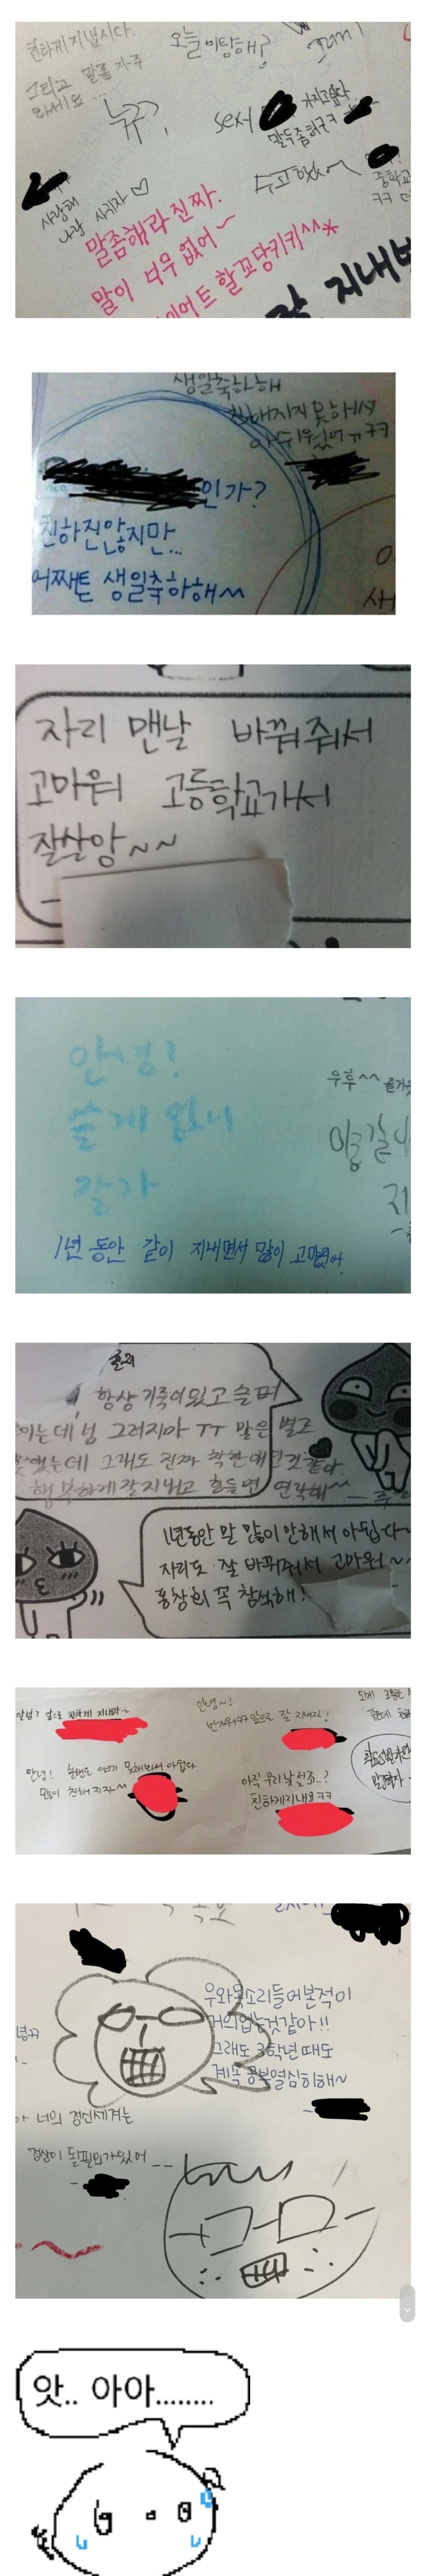 친하게 지냅시다.
그리고 말좀 자주
하세요...
오늘
뉴규?
sexy
말도좀하구ㅋ
수고했어~
중학교
사랑해
나랑 사귀자♡
말좀해라 진짜.
말이 너무 없어~
할꼬당키키^^*
잘 지내
생일축하해
친해지지 못해서
아쉬웠어ㅠㅋㅋ
인가?
친하진않지만...
어쨌든 생일축하해~
자리 맨날 바꿔줘서
고마워 고등학교가서
잘살앙~~
안녕!
쓸게 없느니
잘가
우후^^
1년 동안 같이 지내면서 많이 고마웠어
항상 기죽어있고 슬퍼
이는데 넝 그러지마 ㅜㅜ 말은 별로
못했는데 그래도 진짜 착한애인것같아
행복하게 잘지내고 힘들면 연락해~
1년동안 말 많이안해서 아쉽다~
자리도 잘 바꿔줘서 고마워~
동창회 꼭 참석해!
안녕? 앞으로 친하게 지내자~
안녕~!
반가워ㅋㅋ 앞으로 잘 지내자!
안녕! 한번도 얘기 못해봐서 아쉽다
많이 친해지자~
아직 우리낯설죠..?
친하게지내요ㅋㅋ
우와목소리들어본적이
거의없는것같아!!
그래도 3학년때도
계속 공부열심히해~
너의 정신세계는
정상이 될필요가있어--
앗.. 아아........